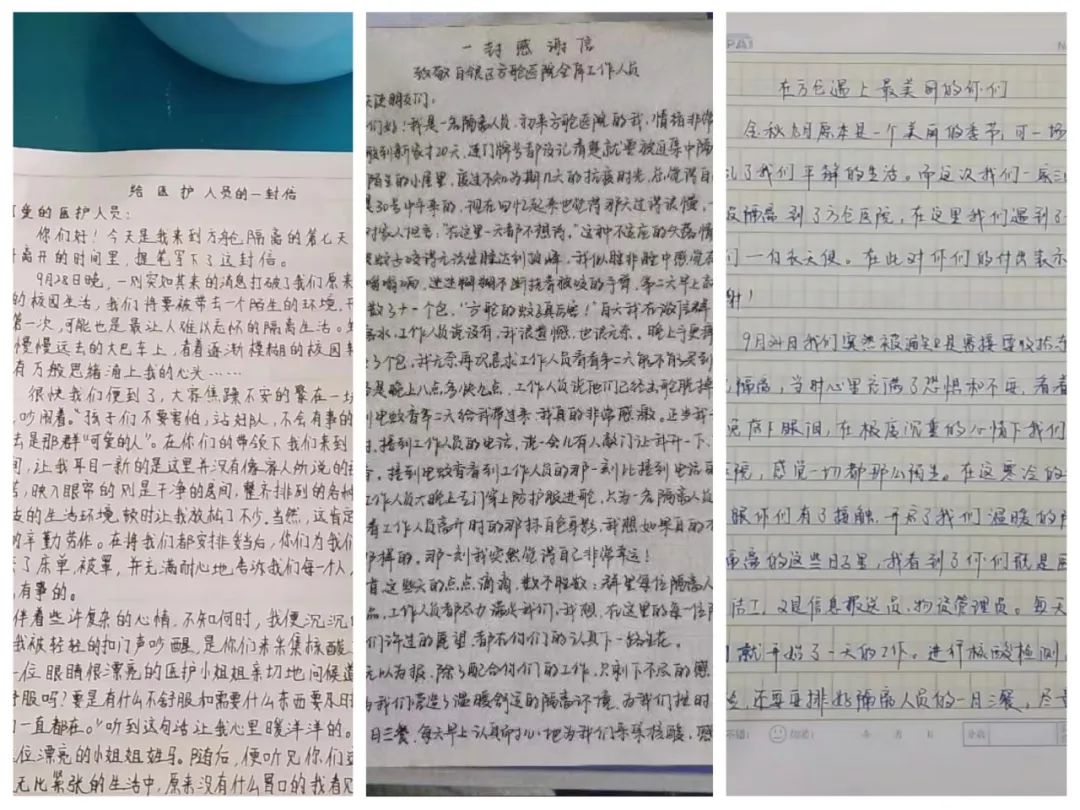 给医护人员的一封信
爱的医护人员：
你们好！今天是我来到方舱隔离的第七天
离开的时间里，提笔写下了这封信。
9月28日晚，一则突如其来的消息打破了我们原来
的校园生活，我们将要被带去一个陌生的环境，开
第一次，可能也是最让人难以忘怀的隔离生活。坐
慢慢远去的大巴车上，看着逐渐模糊的校园
有万般思绪涌上我的心头……
很快我们便到了，大家焦躁不安的聚在一
吵闹着。“孩子们不要害怕，站好队，不会有事的
去是那群“可爱的人”。在你们的带领下我们来到
间，让我耳目一新的是这里并没有像客人所说的
苦，映入眼帘的则是干净的房间，整齐排列的各种
的生活环境顿时让我放松了不少。当然，这肯定
的辛勤劳作。在将我们都安排妥当后，你们为我们
了床单，被罩，并充满耐心地告诉我们每一个人
有事的。
伴着些许复杂的心情，不知何时，我便沉沉
我被轻轻的扣门声吵醒，是你们来采集核酸
一位眼睛很漂亮的医护小姐姐亲切地问候道
舒服吗？要是有什么不舒服和需要什么东西要及时
们一直都在。”听到这句话让我心里暖洋洋的。
位漂亮的小姐姐姓马。随后，便听见你们
无比紧张的生活中，原来没有什么胃口的我看见
一封感谢信
致敬白银区方舱医院全体工作人员
天使朋友们：
们好！我是一名隔离人员，初来方舱医院的我，情绪非常
搬到新家才20天，连门牌号都没记清楚就要被迫集中隔
陌生的小屋里，度过不知为期几天的抗疫时光，总觉得自
是30号中午来的，现在回忆起来也觉得那天过得很慢，一
对家人坦言：“在这里一天都不想待。”这种不适应的失落情
被蚊子咬得无法生睡达到顶峰，我似睡非睡中感觉有
嗡嗡响，迷迷糊糊不断挠着被咬的手臂，第二天早上起
数了十一个包，“方舱的蚊子真厉害！”白天我在微信群
露水，工作人员说没有，我很遗憾，也很无奈。晚上手更痒
3个包，我无奈再次寻求工作人员看看第二天能不能买到
是晚上八点多快九点，工作人员说他们已经去舱脱掉
到电蚊香第二天给我带过来，我真的非常感激。正当我
，接到工作人员的电话，说一会儿有人敲门让我开一下，
，接到电蚊香看到工作人员的那一刻比接到电话
工作人员大晚上专门穿上防护服进舱，只为一名隔离人员
看工作人员离开时的那抹白色身影，我想如果真的
那样的，那一刻我突然觉得自己非常幸运！
有这些天的点点滴滴，数不胜数：群里每位隔离人
品，工作人员都尽力满足我们，我想，在这里的每一位
们许过的愿望，都在你们的认真下一路生花。
无以为报，除了配合你们的工作，只剩下不尽的感
为我们营造了温暖舒适的隔离环境，为我们按时
日三餐，每天早上认真耐心地为我们采集核酸，感
在方仓遇上最美丽的你们
金秋九月原本是一个美丽的季节，可一场
乱了我们平静的生活。而这次我们一底三
被隔离到了方仓医院，在这里我们遇到了
们一白衣天使。在此对你们的付出表示
谢！
9月29日我们突然被通知
隔离，当时心里充满了恐惧和不安，看着
流下眼泪，在极度沉重的心情下我们
医院，感觉一切都那么陌生。在这寒冷的
跟你们有了接触，开启了我们温暖的
隔离的这些日子里，我看到了你们既是医
洁工，又是信息报送员，物资管理员。每天
就开始了一天的工作。进行核酸检测，
还要安排好隔离人员的一日三餐，尽